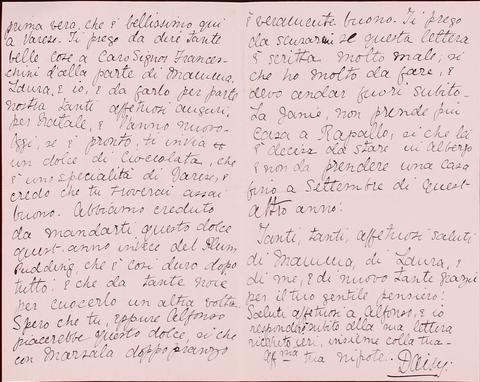 prima vera, che è bellissimo qui
a Varese. Ti prego da dire tante
belle cose a Caro Signor Frances-
chini dalla parte di Mamma,
Laura, e io, e da farlo per parte
nostra tanti affettuosi auguri,
per Natale, e l'Anno nuovo.
Oggi, se è pronto, ti invia
un dolce di Cioccolata, che
è uno specialità di Varese, e
credo che tu troverai assai
buono. Abbiamo creduto
da mandarti questo dolce
quest-anno invece del Plum
Pudding, che è così duro dopo
tutto: e che da tante noie
per cuocerlo un altra volta.
Spero che tu, eppure Alfonso
piacerebbe questo dolce, si che
con Marsala doppo pranzo
è veramente buono. Ti prego
da scusarmi se questa lettera
è scritta molto male; si
che ho molto da fare, e
devo andar fuori subito.
La Janie, non prende più
Casa a Rapallo, si che là
è deciza da stare in albergo
e non da prendere una casa
fino a Settembre di quest-
altro anno!
Tanti, tanti, affettuosi saluti
di Mamma, di Laura, e
di me, e di nuovo tante grazie
per il tuo gentile pensiero!
Saluti affettuosi a Alfonso, e io
risponderò subito alla sua lettera
ricevuto ieri, insieme colla tua-
Aff.ma tua nipote. Daisy.